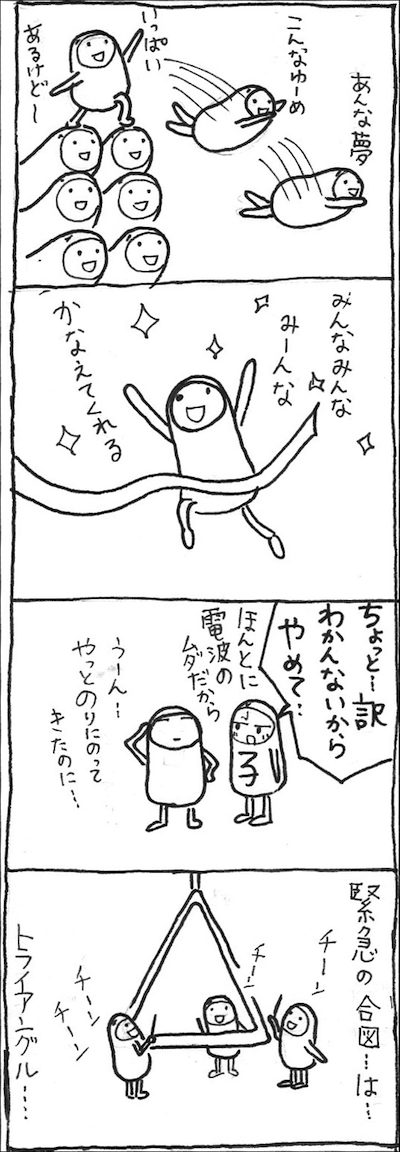 あんな夢
こんなゆーめ
いっぱい
あるけど〜
みんなみんな
みーんな
かなえてくれる
ちょっと…訳
わかんないから
やめて…
ほんとに
電波の
ムダだから
子
うーん…
やっとのりにのって
きたのに…
緊急の合図…は…
チーン
チーン
チーン
チーン
トライアングル……